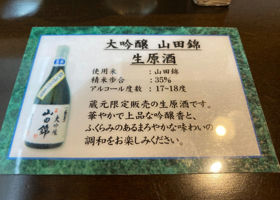 大吟醸 山田錦
生原酒
使用米　：山田錦
精米歩合　：35%
アルコール度数　：17~18度
蔵元限定販売の生原酒です。
華やかで上品な吟醸香と、
ふくらみのあるまろやかな味わいの
調和をお楽しみください。
山田錦
大吟醸